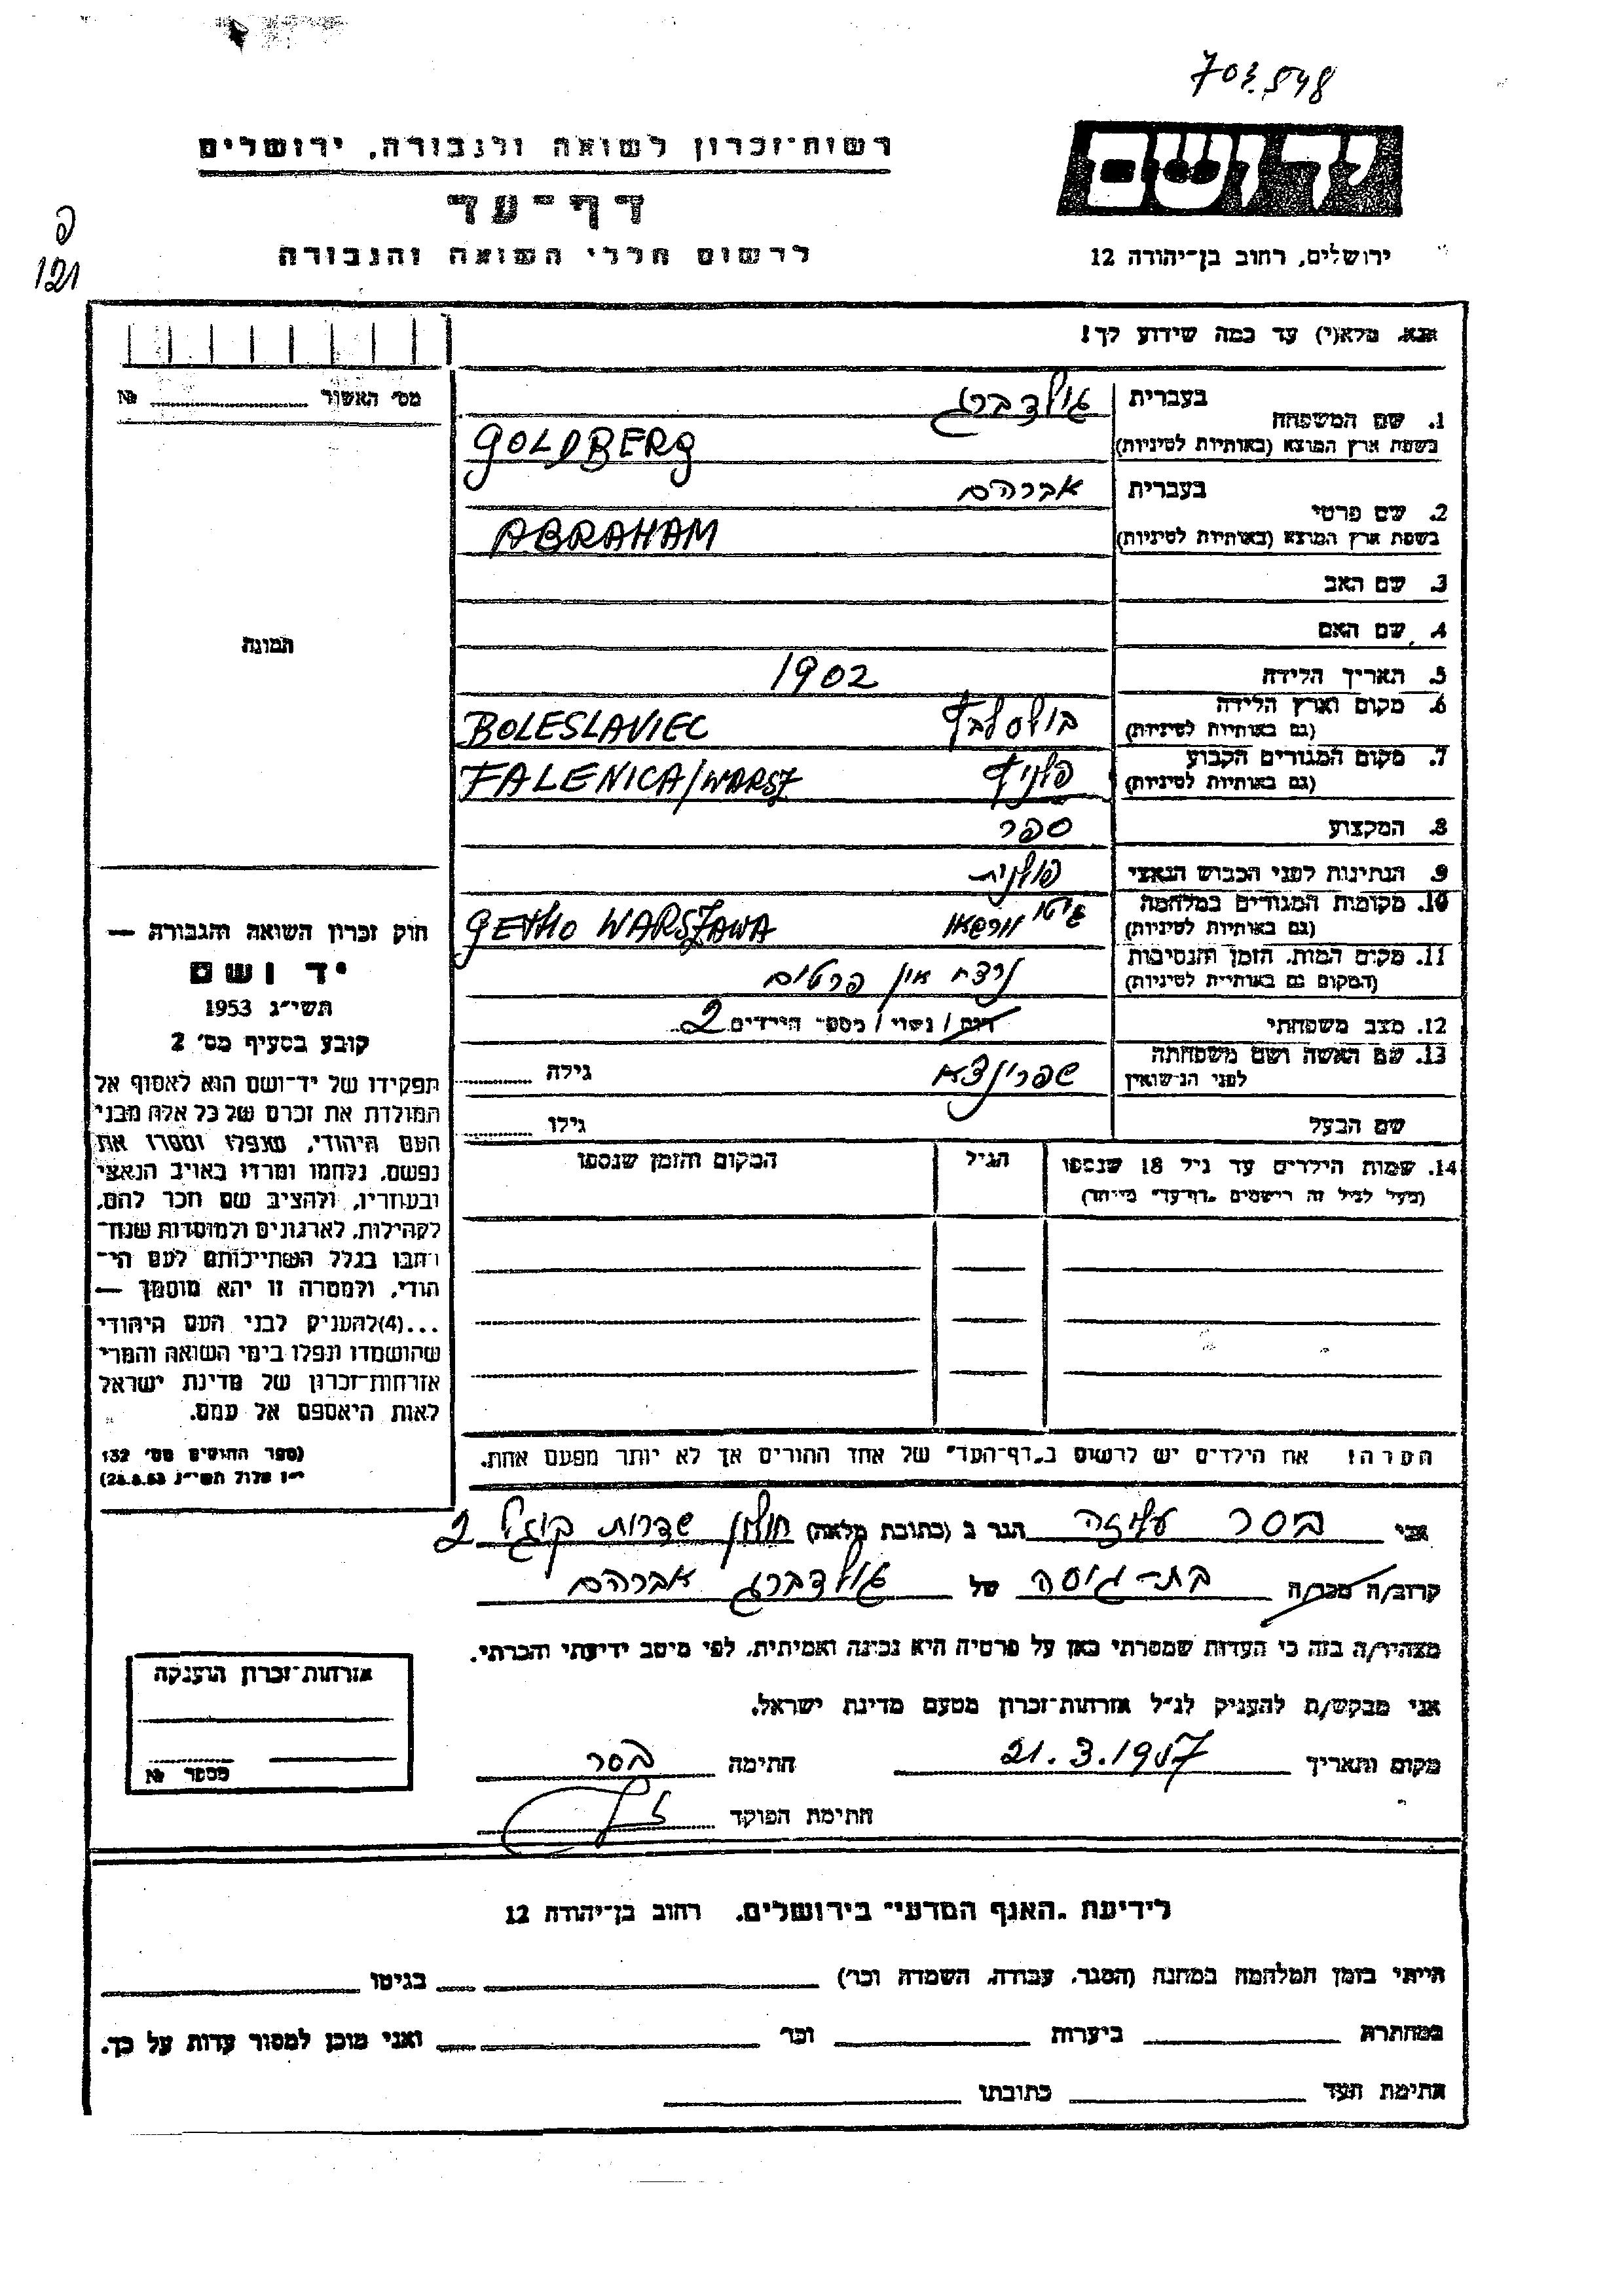 703.548
רשות־זכרון לשואה ולגבורה, ירושלים
יד ושם
דף־עד
לרשום חללי השואה והגבורה
ירושלים, רחוב בן־יהודה 12
פ
121
נא מלא(י) עד כמה שידוע לך!
מס' האשור № 
1. שם המשפחה בעברית גולדברג
בשפת ארץ המוצא (באותיות לטיניות) GOLDBERG
2. שם פרטי בעברית אברהם
בשפת ארץ המוצא (באותיות לטיניות) ABRAHAM
3. שם האב
4. שם האם
תמונה
5. תאריך הלידה 1902
6. מקום וארץ הלידה (גם באותיות לטיניות) בולסלבץ BOLESLAVIEC
7. מקום המגורים הקבוע (גם באותיות לטיניות) פלניץ FALENICA/WARSZ
8. המקצוע ספר
9. הנתינות לפני הכבוש הנאצי פולנית
10. מקומות המגורים במלחמה (גם באותיות לטיניות) גיטו וורשאו GETHO WARSZAWA
11. מקום המות, הזמן והנסיבות (המקום גם באותיות לטיניות) נרצח אין פרטים
12. מצב משפחתי רווק / נשוי / מספר הילדים 2
13. שם האשה ושם משפחתה לפני הנישואין שפרינצא גילה
שם הבעל גילו
14. שמות הילדים עד גיל 18 שנספו הגיל המקום והזמן שנספו
(מעל לגיל זה רישמים "דף־עד" מיוחד)
חוק זכרון השואה והגבורה —
יד ושם
תשי"ג 1953
קובע בסעיף מס' 2
תפקידו של יד־ושם הוא לאסוף אל
המולדת את זכרם של כל אלה מבני
העם היהודי, שנפלו ומסרו את
נפשם, נלחמו ומרדו באויב הנאצי
ובעוזריו, ולהציב שם וזכר להם,
לקהילות, לארגונים ולמוסדות שנח־
רבו בגלל השתייכותם לעם הי־
הודי, ולמטרה זו יהא מוסמך —
...(4)להעניק לבני העם היהודי
שהושמדו ונפלו בימי השואה והמרי
אזרחות־זכרון של מדינת ישראל
לאות היאספם אל עמם.
(ספר החוקים מס' 132
י"ז אלול תשי"ג 28.8.53)
הערה! את הילדים יש לרשום ב"דף־העד" של אחד ההורים אך לא יותר מפעם אחת.
אני בסר עליזה הגר ב (כתובת מלאה) חולון שדרות קוגל 2
קרוב/ה מכר/ה בת־גיסה של גולדברג אברהם
מצהיר/ה בזה כי העדות שמסרתי כאן על פרטיה היא נכונה ואמיתית, לפי מיטב ידיעתי והכרתי.
אני מבקש/ת להעניק לנ"ל אזרחות־זכרון מטעם מדינת ישראל.
מקום ותאריך 21.3.1957 חתימה בסר
חתימת הפוקד
אזרחות־זכרון הוענקה
מספר №
לידיעת "האגף המדעי" בירושלים, רחוב בן־יהודה 12
הייתי בזמן המלחמה במחנה (הסגר, עבודה, השמדה וכו') בגיטו
במחתרת ביערות וכו' ואני מוכן למסור עדות על כך.
חתימת העד כתובתו